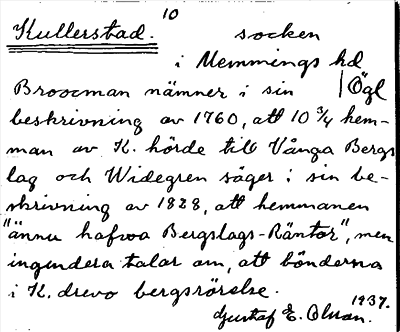 10
Kullerstad. socken
i Memmings hd
Broocman nämner i sin /Ögl
beskrivning av 1760, att 10 3/4 hem-
man av K. hörde till Vånga Bergs
lag och Widegren säger i sin be-
skrivning av 1828, att hemmanen
"ännu hafva Bergslags-Räntor", men
ingendera talar om, att bönderna
i K. drevo bergsrörelse.
1937.
Gustaf E. Olsson.